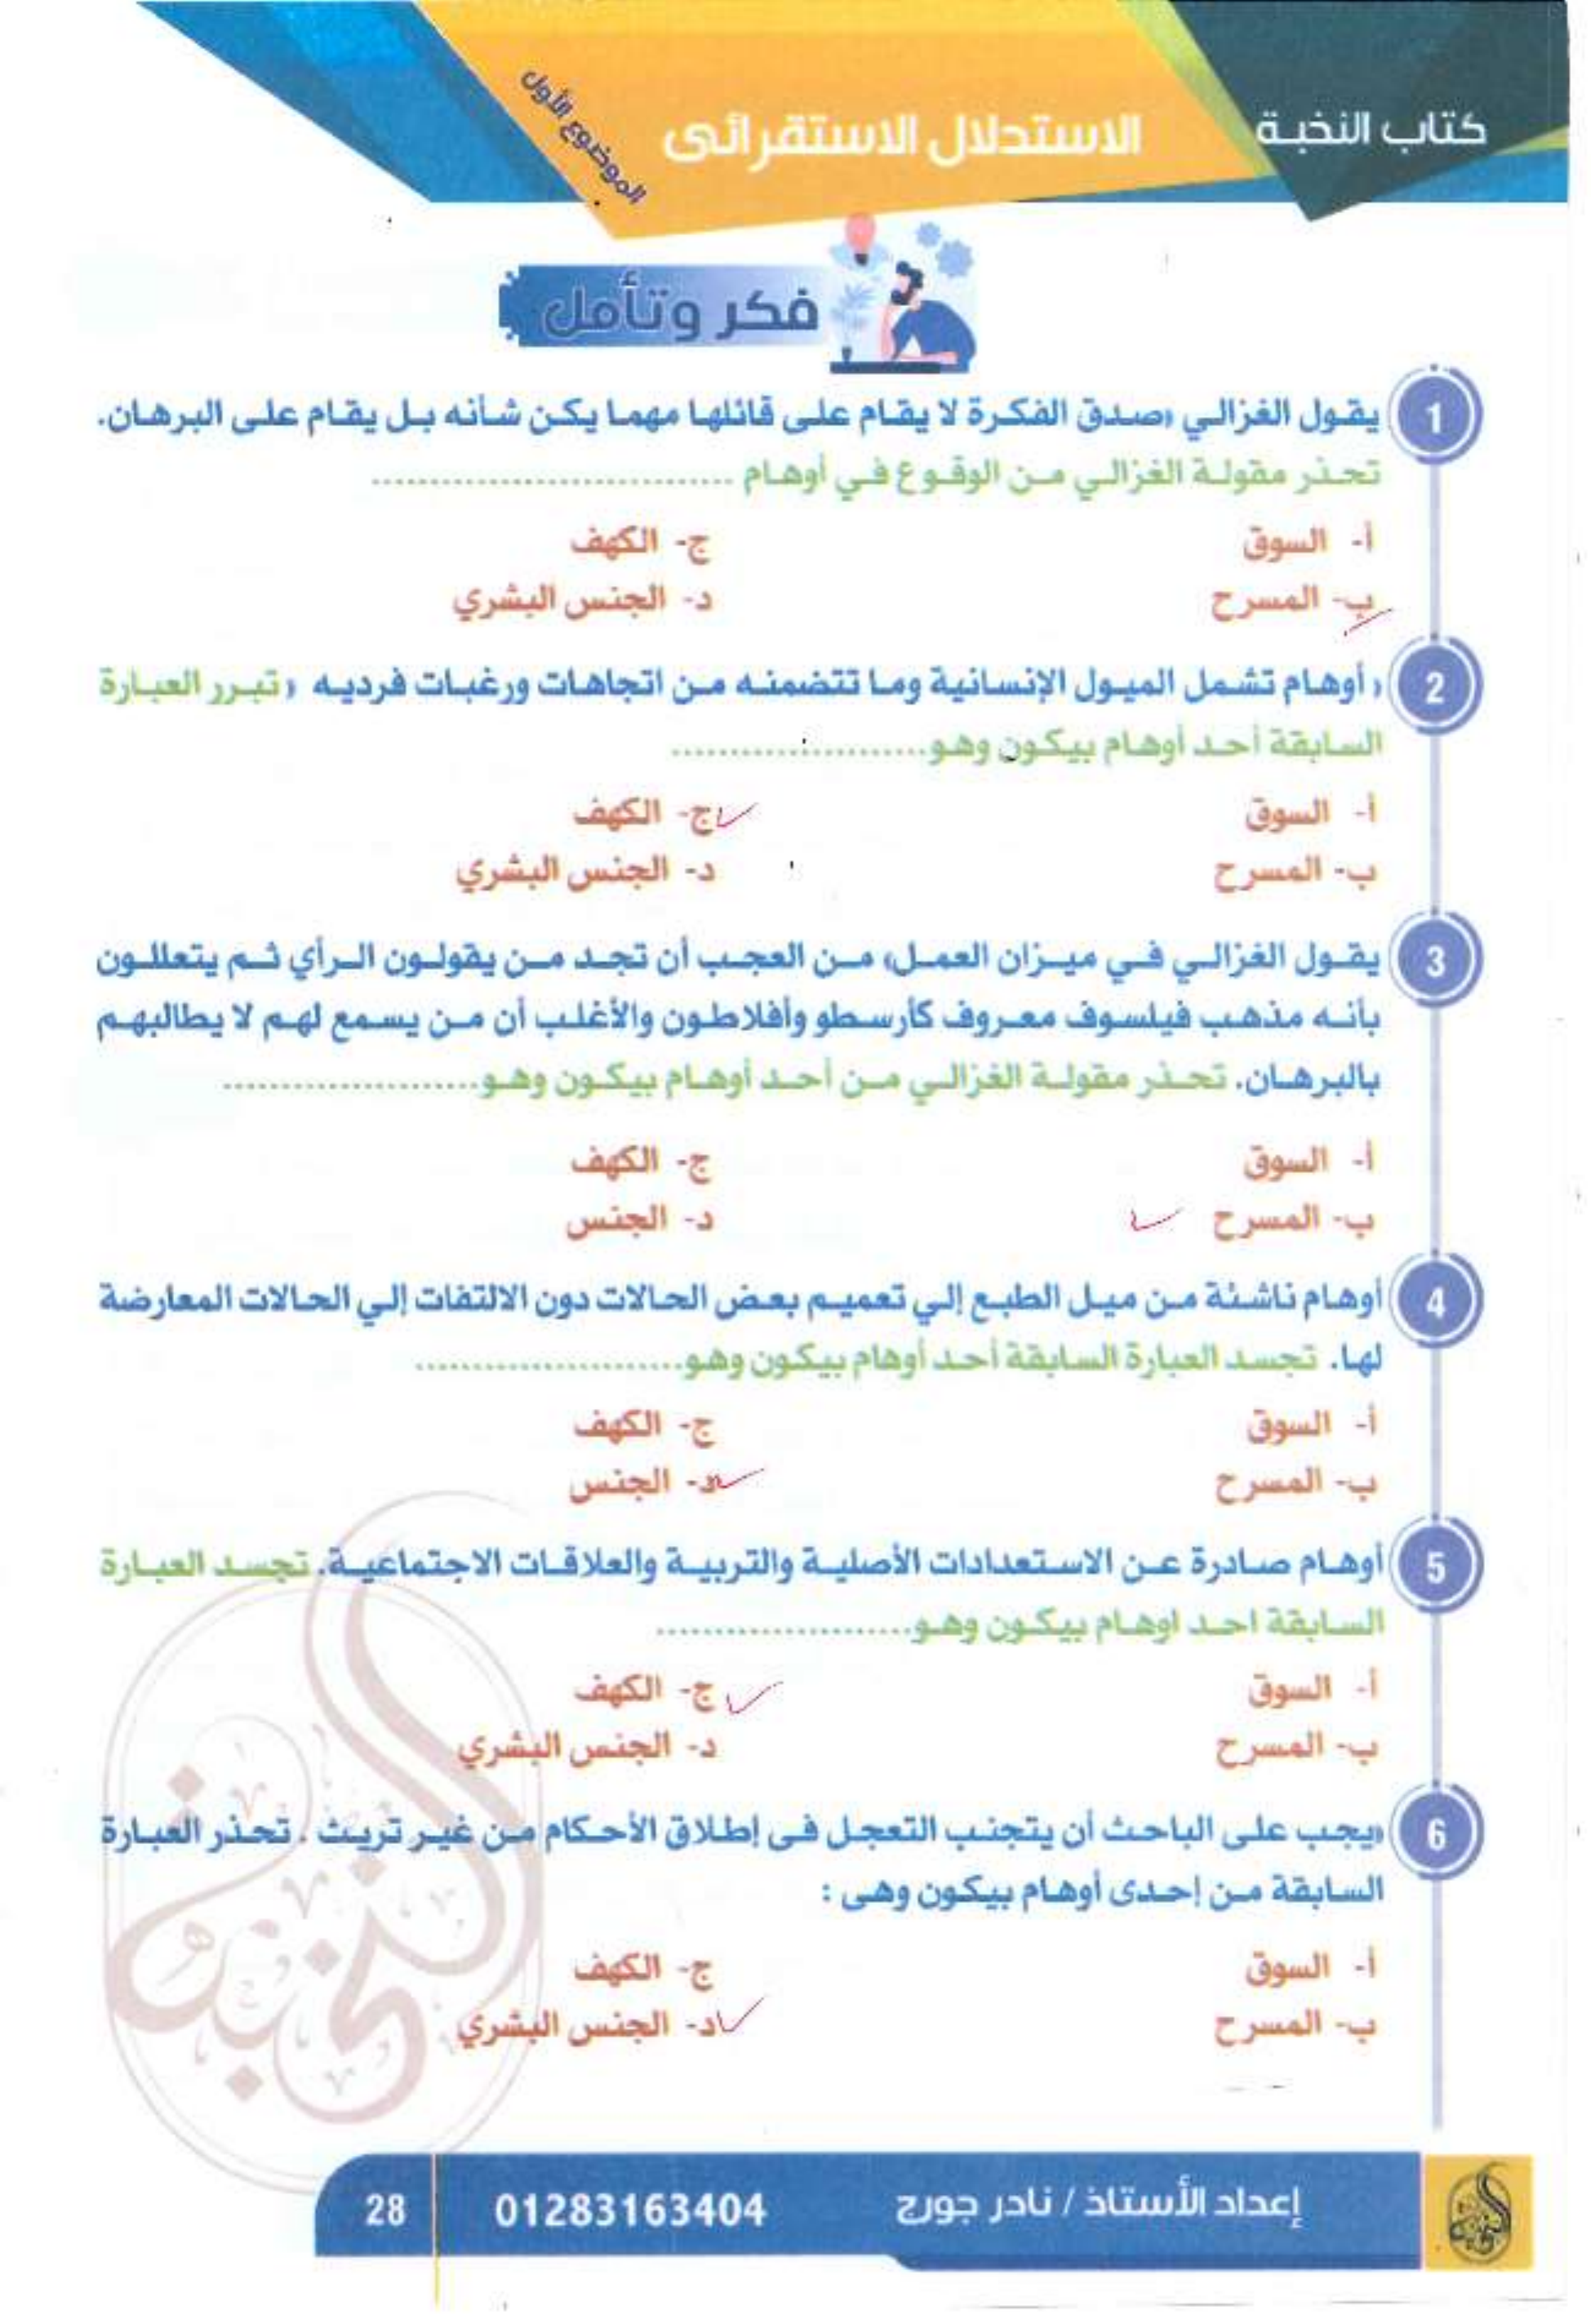 كتاب النخبة
الاستدلال الاستقرائى
الموضوع الأول
فكر وتأمل
1 يقول الغزالي «صدق الفكرة لا يقام على قائلها مهما يكن شأنه بل يقام على البرهان.
تحذر مقولة الغزالي من الوقوع في أوهام ................................
أ- السوق
ج- الكهف
ب- المسرح
د- الجنس البشري
2 «أوهام تشمل الميول الإنسانية وما تتضمنه من اتجاهات ورغبات فرديه» تبرر العبارة
السابقة أحد أوهام بيكون وهو......................
أ- السوق
ج- الكهف
ب- المسرح
د- الجنس البشري
3 يقول الغزالي في ميزان العمل» من العجب أن تجد من يقولون الرأي ثم يتعللون
بأنه مذهب فيلسوف معروف كأرسطو وأفلاطون والأغلب أن من يسمع لهم لا يطالبهم
بالبرهان. تحذر مقولة الغزالي من أحد أوهام بيكون وهو......................
أ- السوق
ج- الكهف
ب- المسرح
د- الجنس
4 أوهام ناشئة من ميل الطبع إلي تعميم بعض الحالات دون الالتفات إلي الحالات المعارضة
لها. تجسد العبارة السابقة أحد أوهام بيكون وهو.......................
أ- السوق
ج- الكهف
ب- المسرح
د- الجنس
5 أوهام صادرة عن الاستعدادات الأصلية والتربية والعلاقات الاجتماعية. تجسد العبارة
السابقة احد اوهام بيكون وهو......................
أ- السوق
ج- الكهف
ب- المسرح
د- الجنس البشري
6 «يجب على الباحث أن يتجنب التعجل فى إطلاق الأحكام من غير تريث . تحذر العبارة
السابقة من إحدى أوهام بيكون وهى :
أ- السوق
ج- الكهف
ب- المسرح
د- الجنس البشري
النخبة
إعداد الأستاذ / نادر جورج
01283163404
28